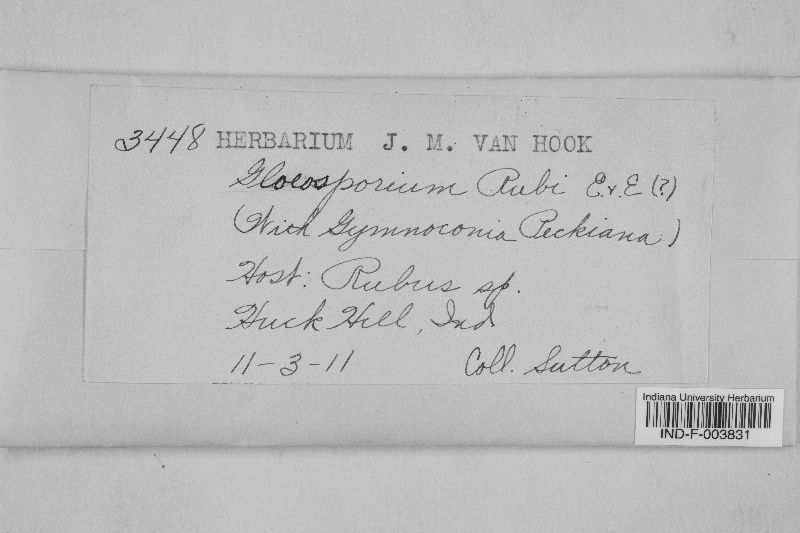 3448 HERBARIUM J. M. VAN HOOK
Gloeosporium Rubi E. v. E (?)
(With Gymnoconia Peckiana)
Host: Rubus sp.
Huck Hill, Ind
11-3-11 Coll. Sutton
Indiana University Herbarium
IND-F-003831